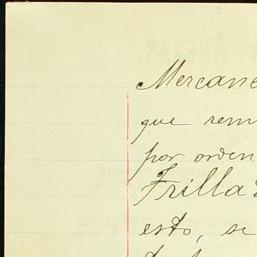 Mercane
que rem
por orden
Frilla
esto, se